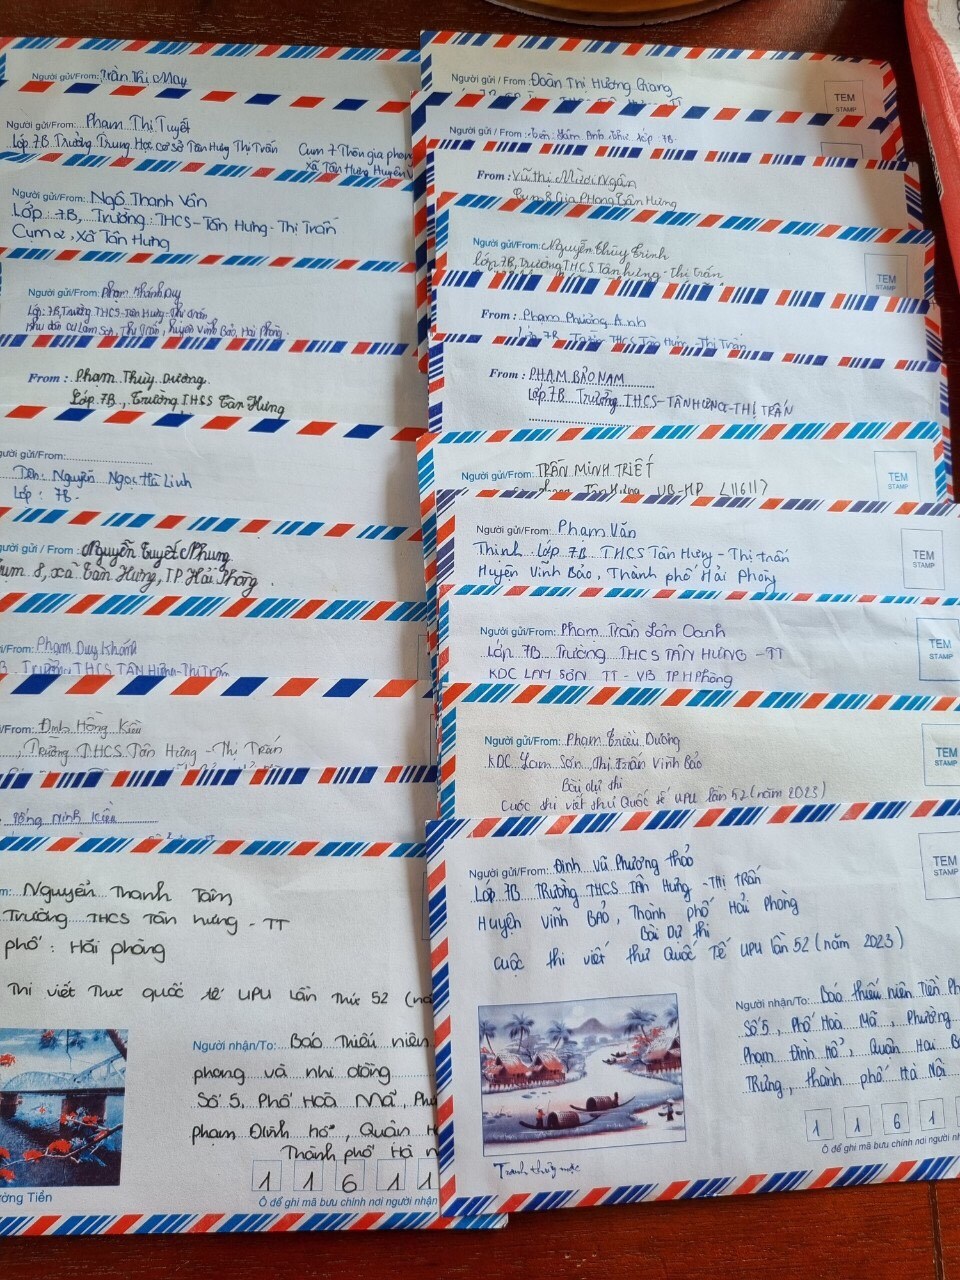 Người gửi/From: Trần Thị May
Người gửi/From: Phạm Thị Tuyết
Lớp 7B Trường Trung Học cơ sở Tân Hưng Thị Trấn
Cụm 7 Thôn gia phong
xã Tân Hưng Huyện V
Người gửi/From: Ngô Thanh Vân
Lớp: 7B, Trường: THCS-Tân Hưng-Thị Trấn
Cụm 2, Xã Tân Hưng
Người gửi/From: Phạm Khánh Duy
Lớp: 7B, Trường THCS-Tân Hưng-Thị trấn
Khu dân cư Lam Sơn, Thị Trấn, huyện Vĩnh Bảo, Hải Phòng.
From: Phạm Thùy Dương
Lớp 7B, Trường THSS Tân Hưng
gười gửi/From:
Tên: Nguyễn Ngọc Hà Linh
Lớp: 7B.
gười gửi / From: Nguyễn Tuyết Nhung
um 8, xã Tân Hưng, TP Hải Phòng.
/From: Phạm Duy Khánh
B Trường THCS TÂN Hưng-Thị Trấn
/From: Đinh Hồng Kiều
, Trường THCS Tân Hưng-Thị Trấn
Tống Minh Kiên
m: Nguyễn Thanh Tâm
Trường THCS Tân Hưng - TT
phố: Hải phòng
Thi viết Thư quốc tế UPU Lần Thứ 52 (nă
Người nhận/To: Báo Thiếu niên
phong và nhi đồng
Số 5, Phố Hoà Mã, Phư
phạm Đình hổ, Quận H
Thành phố Hà n
1 1 6 1 1
ường Tiền
Ô để ghi mã bưu chính nơi người nhận
Người gửi / From: Đoàn Thị Hương Giang
TEM
STAMP
Người gửi / From: Lớp 7B
From: Vũ Thị Mười Ngân
Cụm 8 Gia Phong Tân Hưng
Người gửi/From: Nguyễn Thùy Trinh
Lớp 7B, Trường THCS Tân hưng-thị trấn
TEM
STAMP
From: Phạm Phương Anh
Lớp 7B Trường THCS Tân Hưng-Thị Trấn
From: PHẠM BẢO NAM
Lớp 7B Trường THCS-TÂN HƯNG-THỊ TRẤN
Người gửi/From: TRẦN MINH TRIẾT
Tân Hưng VB-HP
TEM
STAMP
Người gửi/From: Phạm Văn
Thịnh Lớp 7B THCS Tân Hưng - Thị trấn
Huyện Vĩnh Bảo, Thành phố Hải Phòng
TEM
STAMP
Người gửi/From: Phạm Trần Lâm Oanh
Lớp 7B Trường THCS TÂN HƯNG -TT
KDC LAM SƠN TT - VB TP HPhòng
TEM
STAMP
Người gửi/From: Phạm Triều Dương
KDC Lam Sơn, Thị Trấn Vĩnh Bảo
Bài dự thi
Cuộc thi viết thư Quốc tế UPU lần 52 (năm 2023)
TEM
STAMP
Người gửi/From: Đinh vũ Phương thảo
Lớp 7B TRường THCS TÂn Hưng -Thị TRấn
Huyện Vĩnh BẢo, Thành phố Hải Phòng
Bài Dự thi
cuộc thi viết thư Quốc Tế UPU lần 52 (năm 2023)
TEM
STAMP
Người nhận/To: Báo thiếu niên Tiền Ph
Số 5, Phố Hoà Mã, Phường
Phạm Đình Hổ, Quận Hai B
Trưng, thành phố Hà Nội
1 1 6 1
Ô để ghi mã bưu chính nơi người nh
Tranh thủy mặc